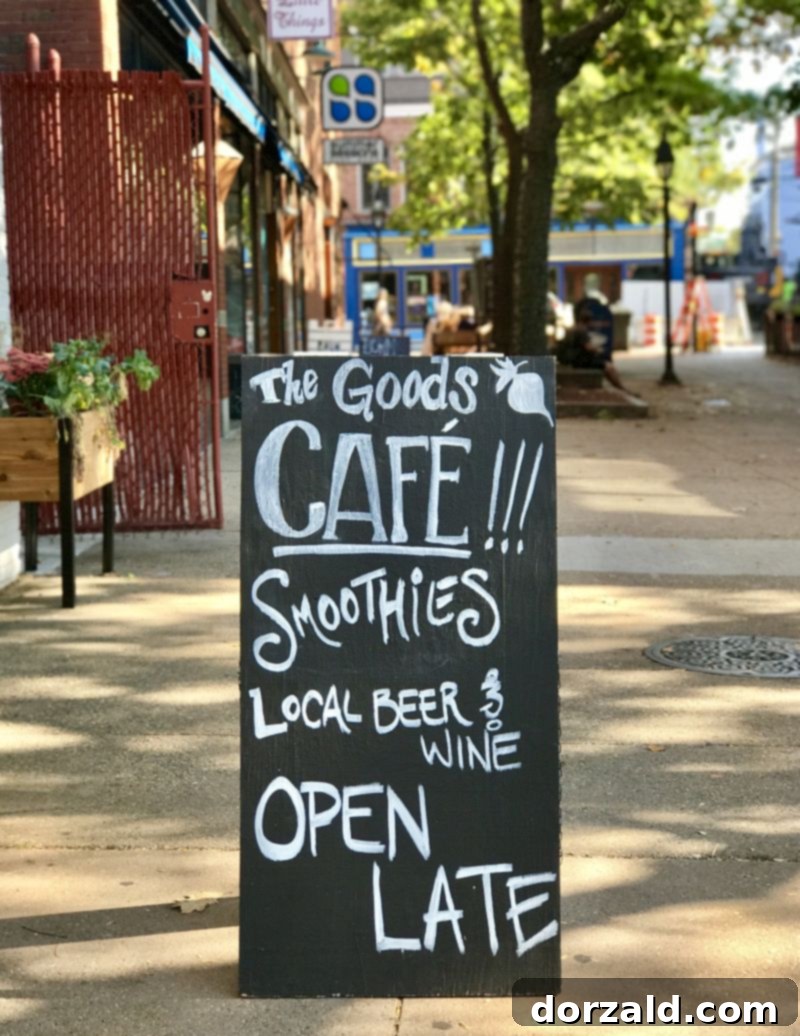 Little
Things
The Goods
CAFÉ!!!
SMOOTHiES
LOCAL BEER &
WINE
OPEN
LATE
dorzald.com